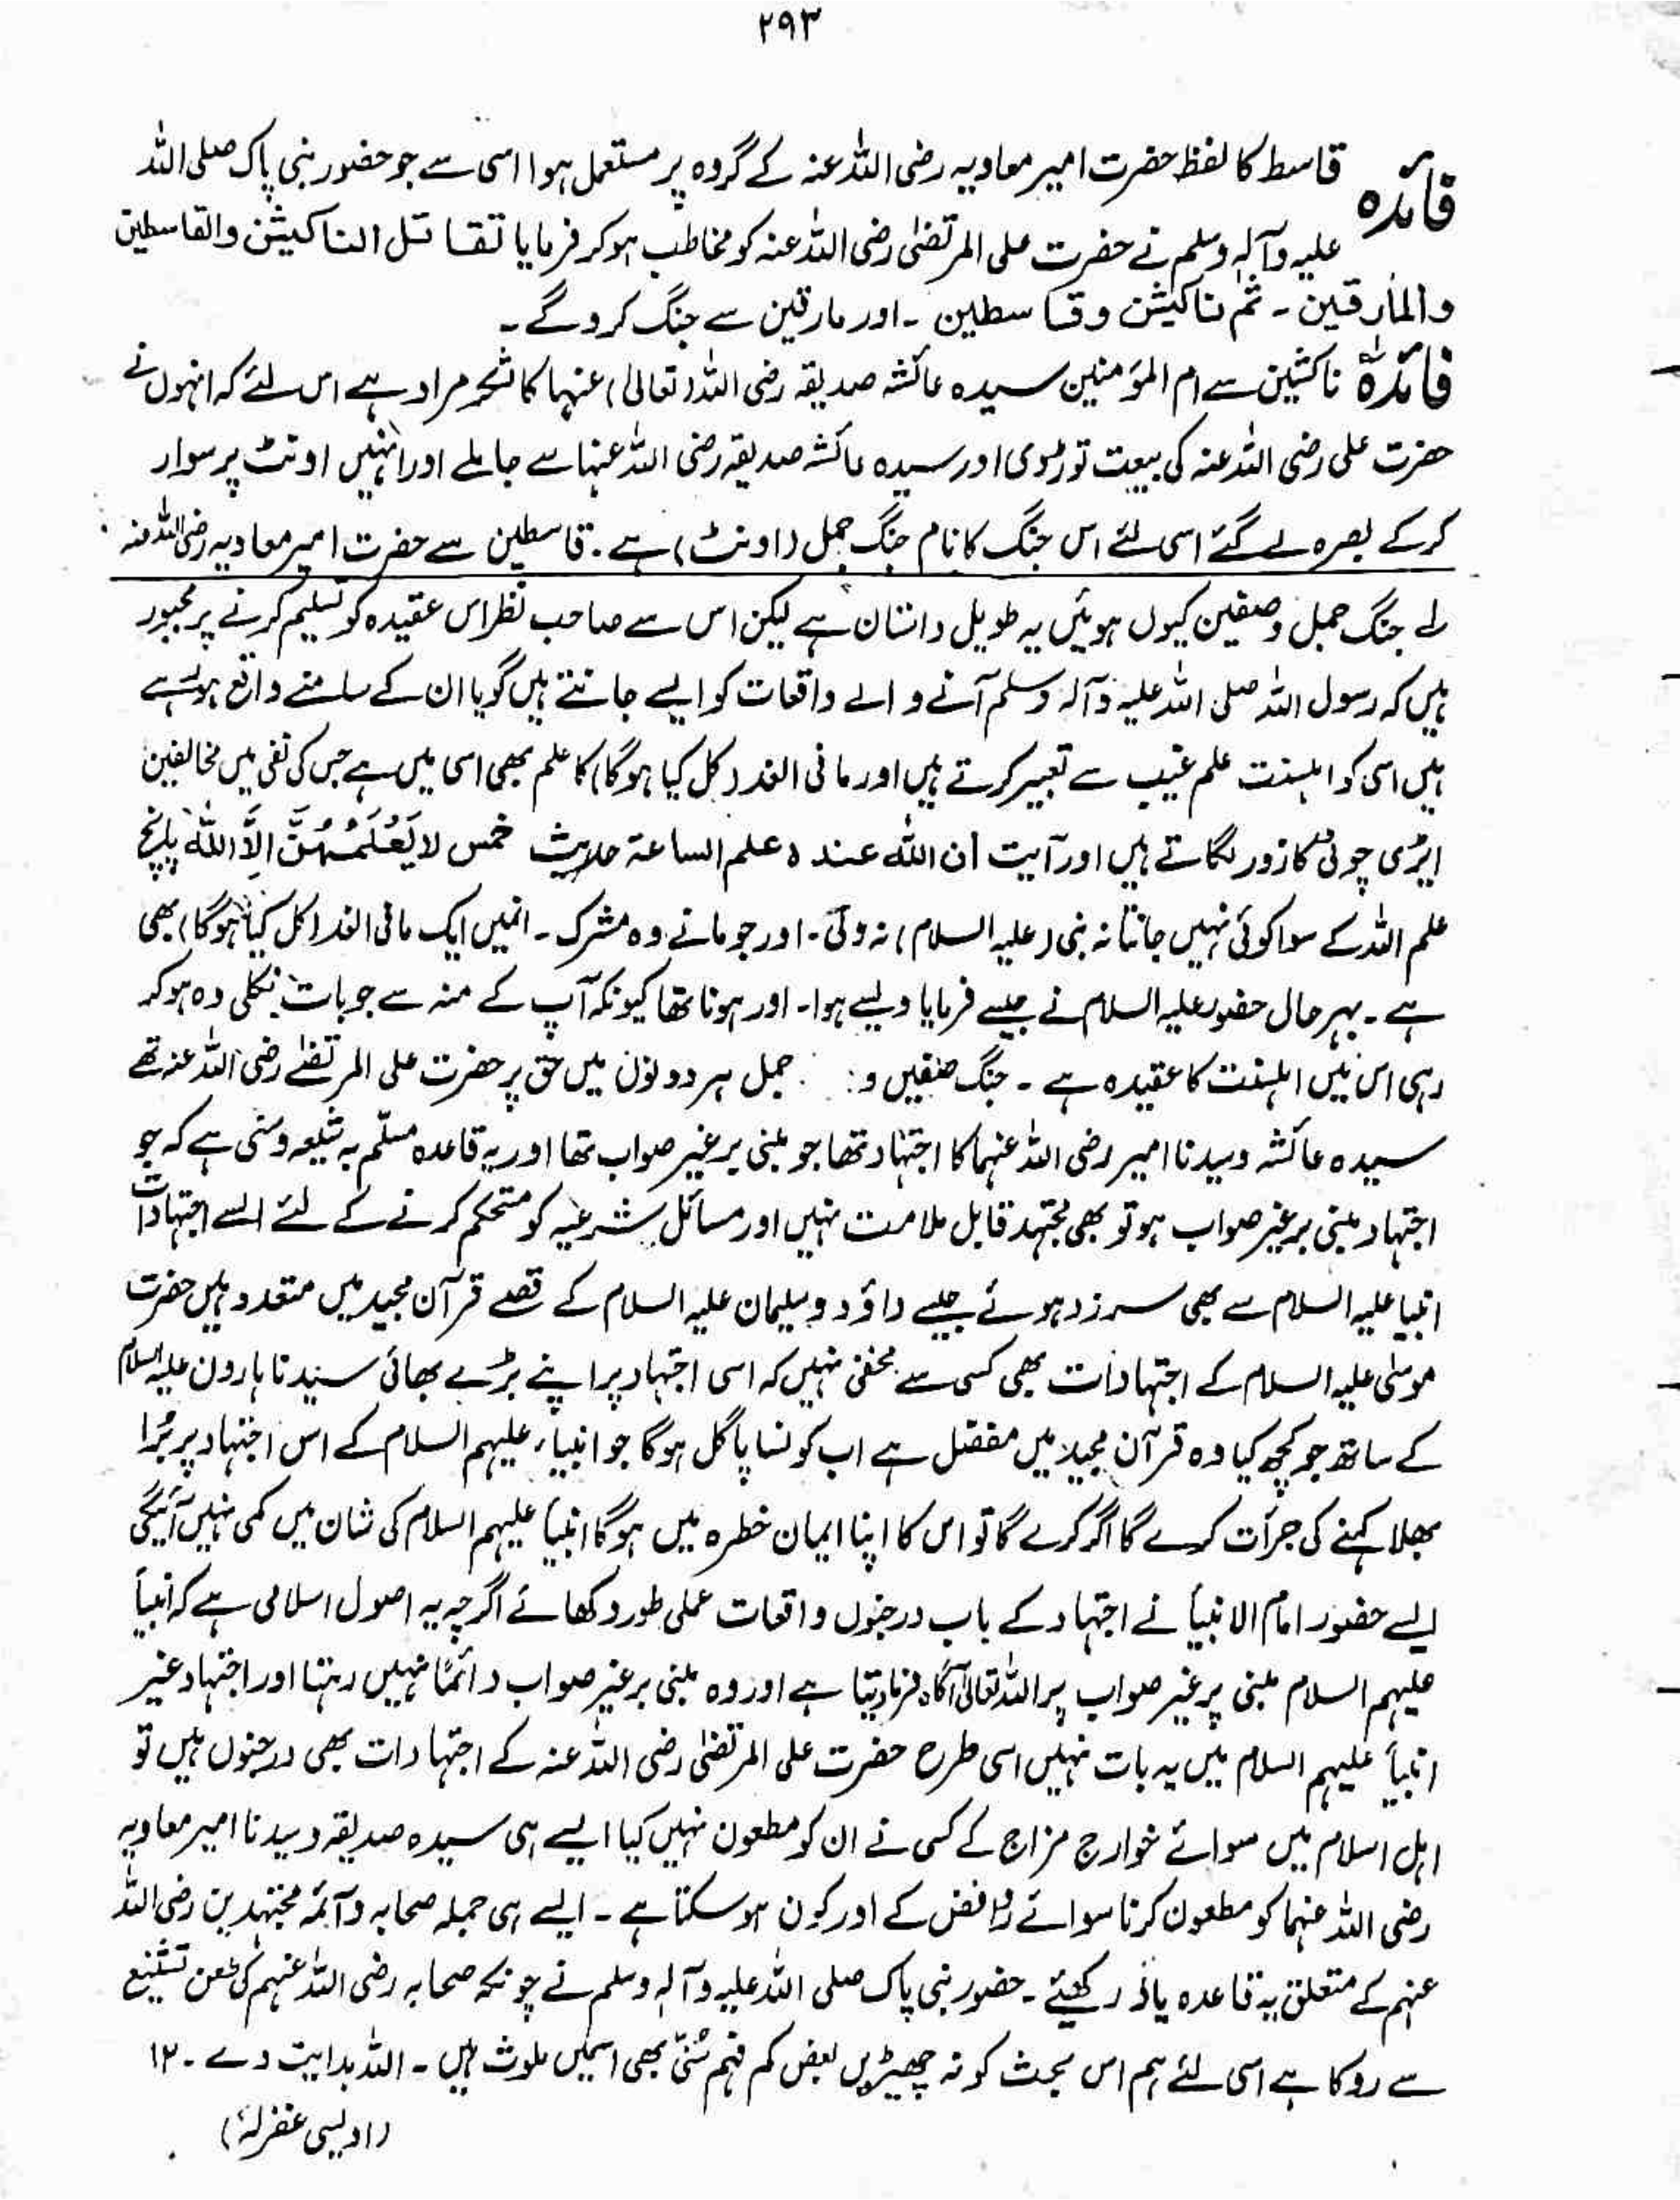 ۲۹۳
فائدہ قاسط کا لفظ حضرت امیر معاویہ رضی اللہ عنہ کے گروہ پر مستعمل ہوا اسی سے جو حضور نبی پاک صلی اللہ
علیہ وآلہ وسلم نے حضرت علی المرتضیٰ رضی اللہ عنہ کو مخاطب ہو کر فرمایا تقاتل الناکیثن والقاسطین
والمارقین ۔ تم ناکیثن وقاسطین ۔ اور مارقین سے جنگ کرو گے ۔
فائدہ ناکثین سے ام المؤمنین سیدہ عائشہ صدیقہ رضی اللہ (تعالیٰ) عنہا کا لشکر مراد ہے اس لئے کہ انہوں نے
حضرت علی رضی اللہ عنہ کی بیعت توڑ دی اور سیدہ عائشہ صدیقہ رضی اللہ عنہا سے جا ملے اور انہیں اونٹ پر سوار
کر کے بصرہ لے گئے اسی لئے اس جنگ کا نام جنگ جمل (اونٹ) ہے ۔ قاسطین سے حضرت امیر معاویہ رضی اللہ عنہ
لے جنگ جمل وصفین کیوں ہوئیں یہ طویل داستان ہے لیکن اس سے صاحب نظر اس عقیدہ کو تسلیم کرنے پر مجبور
ہیں کہ رسول اللہ صلی اللہ علیہ وآلہ وسلم آنے والے واقعات کو ایسے جانتے ہیں گویا ان کے سامنے واقع ہو رہے
ہیں اسی کو اہلسنت علم غیب سے تعبیر کرتے ہیں اور مافی الغد (کل کیا ہوگا) کا علم بھی اسی میں ہے جس کی نفی میں مخالفین
ایڑی چوٹی کا زور لگاتے ہیں اور آیت ان اللہ عندہ علم الساعۃ حدیث خمس لا یَعْلَمُہُنَّ اِلَّا اللہُ پانچ
علم اللہ کے سوا کوئی نہیں جانتا نہ نبی (علیہ السلام) نہ ولی ۔ اور جو مانے وہ مشرک ۔ انہیں ایک مافی الغد (کل کیا ہوگا) بھی
ہے ۔ بہرحال حضور علیہ السلام نے جیسے فرمایا ویسے ہوا ۔ اور ہونا تھا کیونکہ آپ کے منہ سے جو بات نکلی وہ ہو کر
رہی اس میں اہلسنت کا عقیدہ ہے ۔ جنگ صفین و جمل ہر دونوں میں حق پر حضرت علی المرتضےٰ رضی اللہ عنہ تھے
سیدہ عائشہ وسیدنا امیر رضی اللہ عنہما کا اجتہاد تھا جو مبنی بر غیر صواب تھا اور یہ قاعدہ مسلّم بہ شیعہ وسنی ہے کہ جو
اجتہاد مبنی بر غیر صواب ہو تو بھی مجتہد قابل ملامت نہیں اور مسائل شرعیہ کو متحکم کرنے کے لئے ایسے اجتہادات
انبیا علیہ السلام سے بھی سرزد ہوئے جیسے داؤد وسلیمان علیہ السلام کے قصے قرآن مجید میں متعدد ہیں حضرت
موسٰی علیہ السلام کے اجتہادات بھی کسی سے مخفی نہیں کہ اسی اجتہاد پر اپنے بڑے بھائی سیدنا ہارون علیہ السلام
کے ساتھ جو کچھ کیا وہ قرآن مجید میں مفصل ہے اب کونسا پاگل ہوگا جو انبیاء علیہم السلام کے اس اجتہاد پر بُرا
بھلا کہنے کی جرأت کرے گا اگر کرے گا تو اس کا اپنا ایمان خطرہ میں ہوگا انبیأ علیہم السلام کی شان میں کمی نہیں آئیگی
ایسے حضور امام الانبیأ نے اجتہاد کے باب درجنوں واقعات عملی طور دکھائے اگرچہ یہ اصول اسلامی ہے کہ انبیأ
علیہم السلام مبنی پر غیر صواب پر اللہ تعالیٰ آگاہ فرما دیتا ہے اور وہ مبنی بر غیر صواب دائمًا نہیں رہتا اور اجتہاد غیر
انبیأ علیہم السلام میں یہ بات نہیں اسی طرح حضرت علی المرتضیٰ رضی اللہ عنہ کے اجتہادات بھی درجنوں ہیں تو
اہل اسلام میں سوائے خوارج مزاج کے کسی نے ان کو مطعون نہیں کیا ایسے ہی سیدہ صدیقہ وسیدنا امیر معاویہ
رضی اللہ عنہما کو مطعون کرنا سوائے روافض کے اور کون ہو سکتا ہے ۔ ایسے ہی جملہ صحابہ وآئمہ مجتہدین رضی اللہ
عنہم کے متعلق یہ قاعدہ یاد رکھیئے ۔ حضور نبی پاک صلی اللہ علیہ وآلہ وسلم نے چونکہ صحابہ رضی اللہ عنہم کی طعن تشنیع
سے روکا ہے اسی لئے ہم اس بحث کو نہ چھیڑیں بعض کم فہم سُنّی بھی اسمیں ملوث ہیں ۔ اللہ ہدایت دے ۔ ۱۲
(اویسی غفرلہٗ)